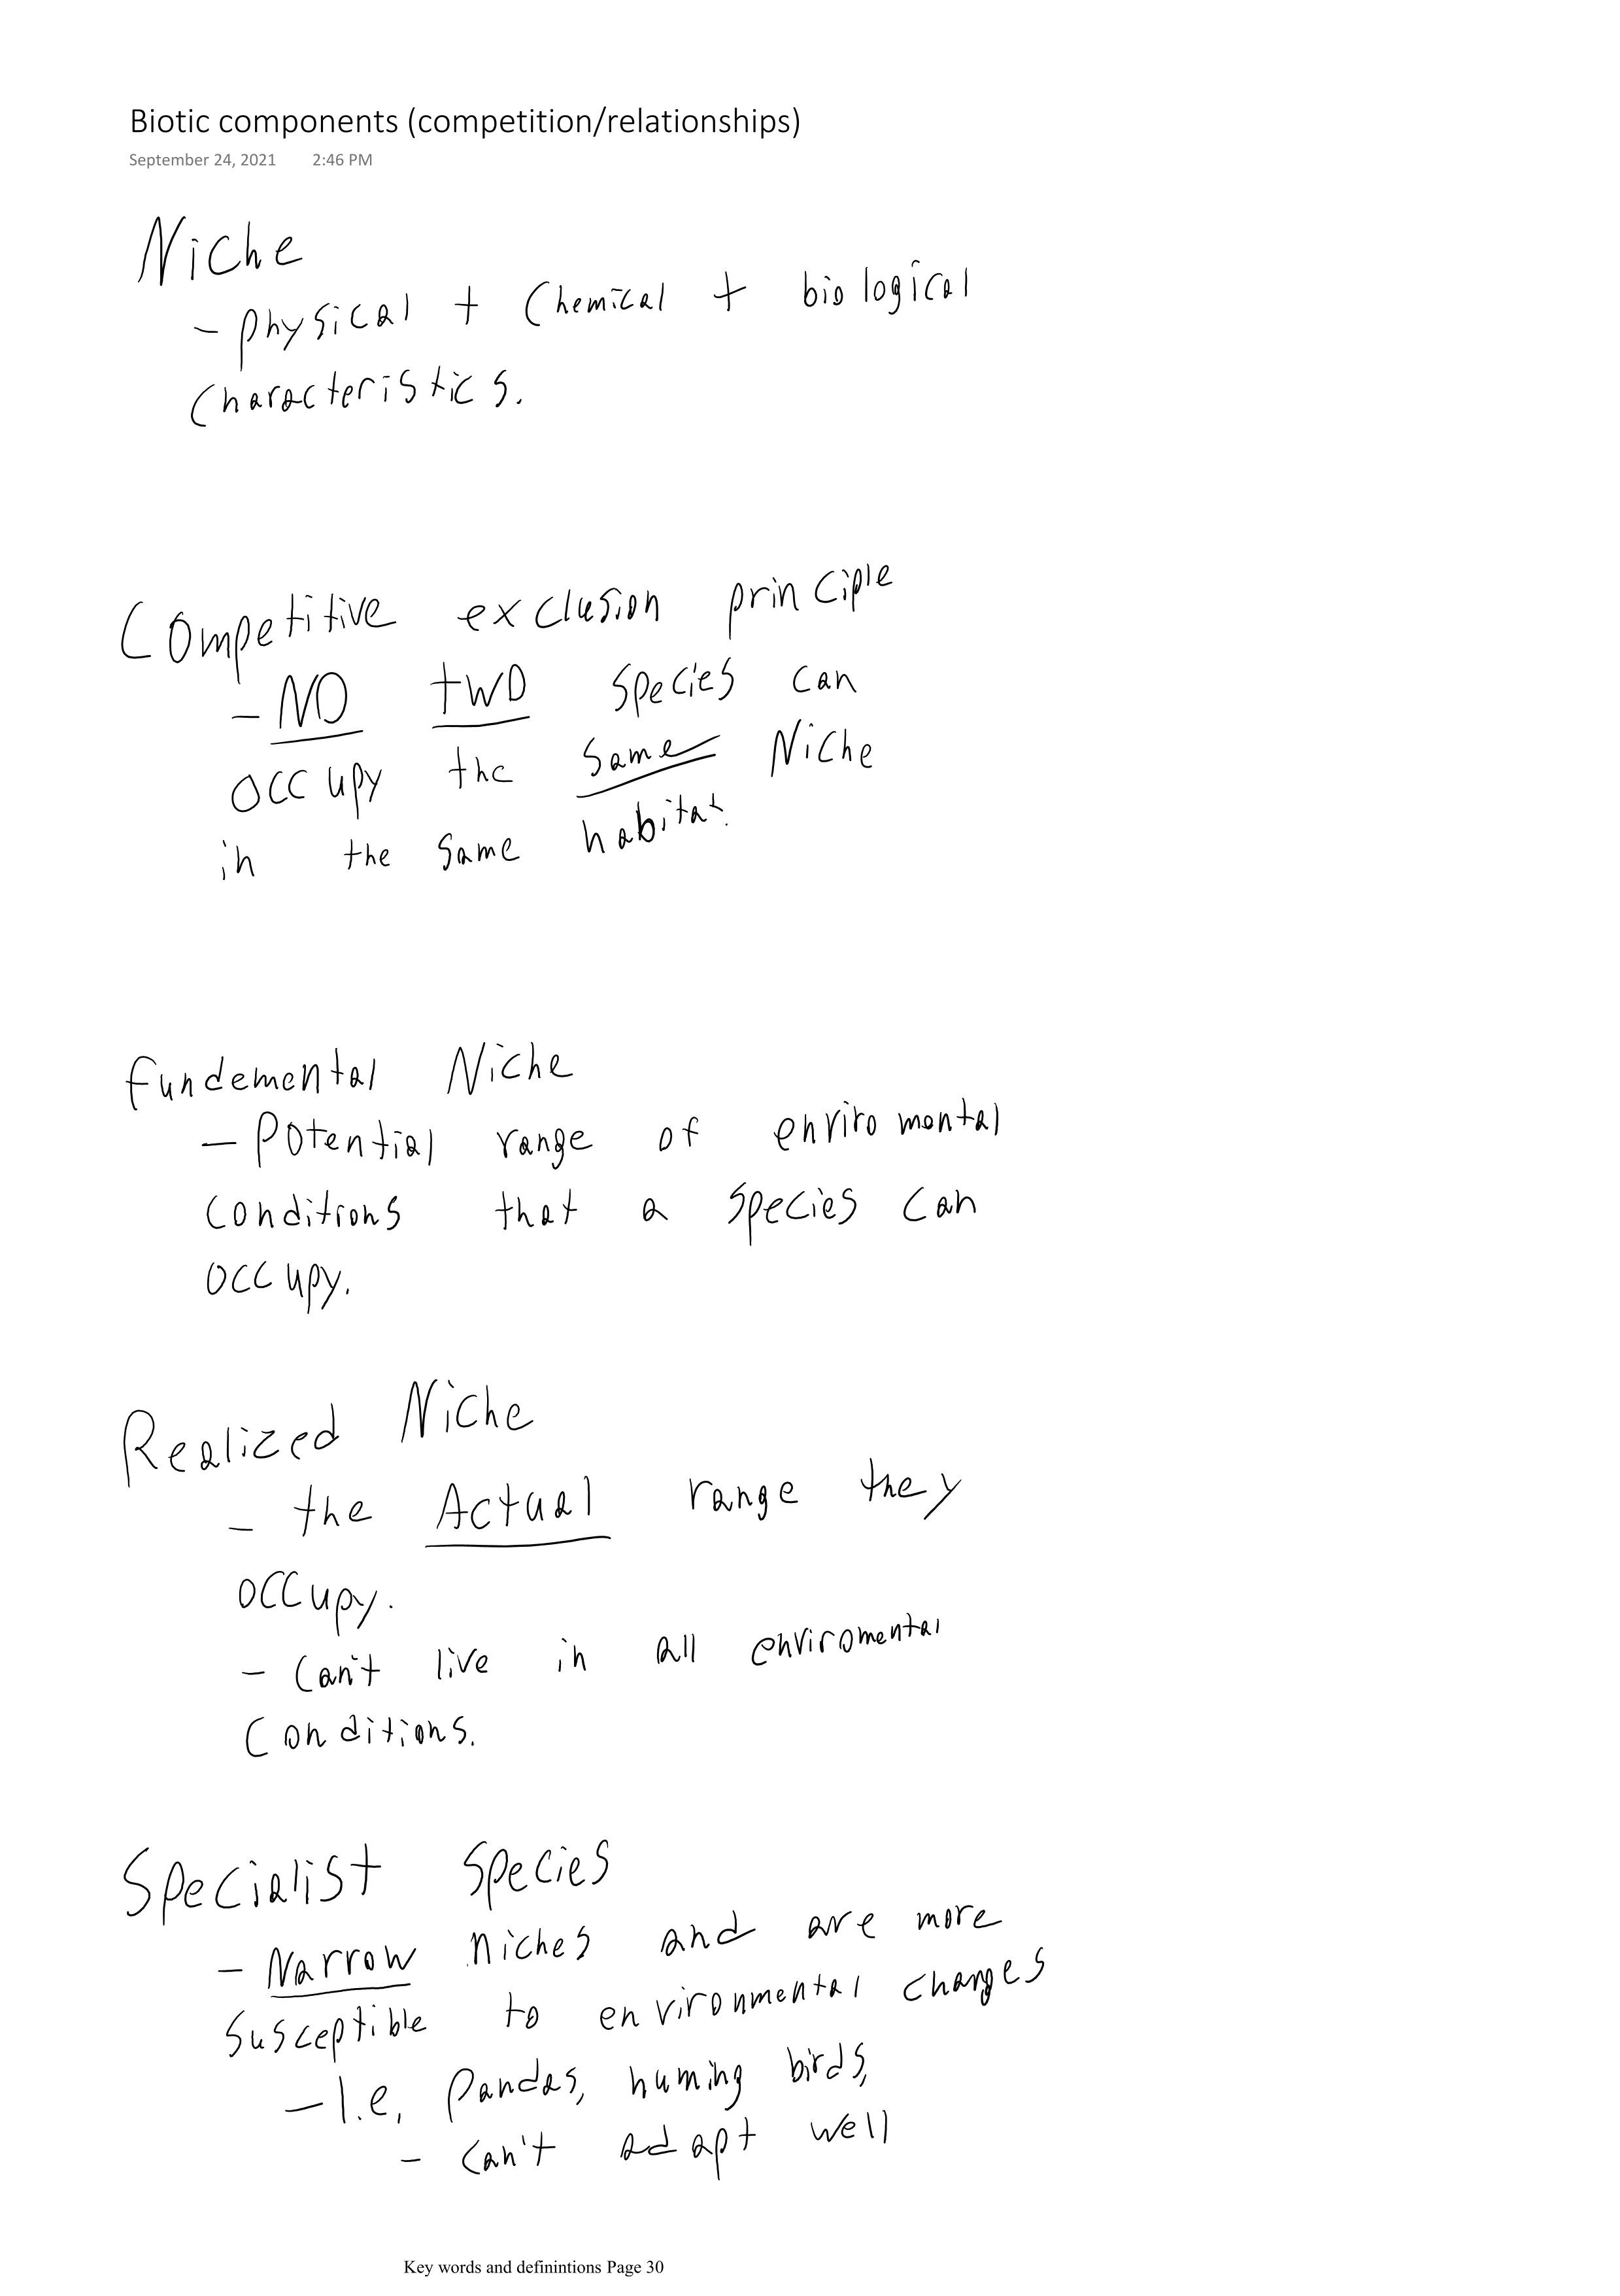 Biotic components (competition/relationships)
September 24, 2021 2:46 PM
Niche
- physical + Chemical + biological
Characteristics.
Competitive exclusion principle
- NO two species can
occupy the same Niche
in the same habitat.
fundemental Niche
- Potential range of enviromental
conditions that a species can
occupy.
Realized Niche
- the Actual range they
occupy.
- Can't live in all enviromental
Conditions.
Specialist species
- Narrow niches and are more
susceptible to environmental changes
- I.e, Pandas, huming birds,
- can't adapt well
Key words and definintions Page 30